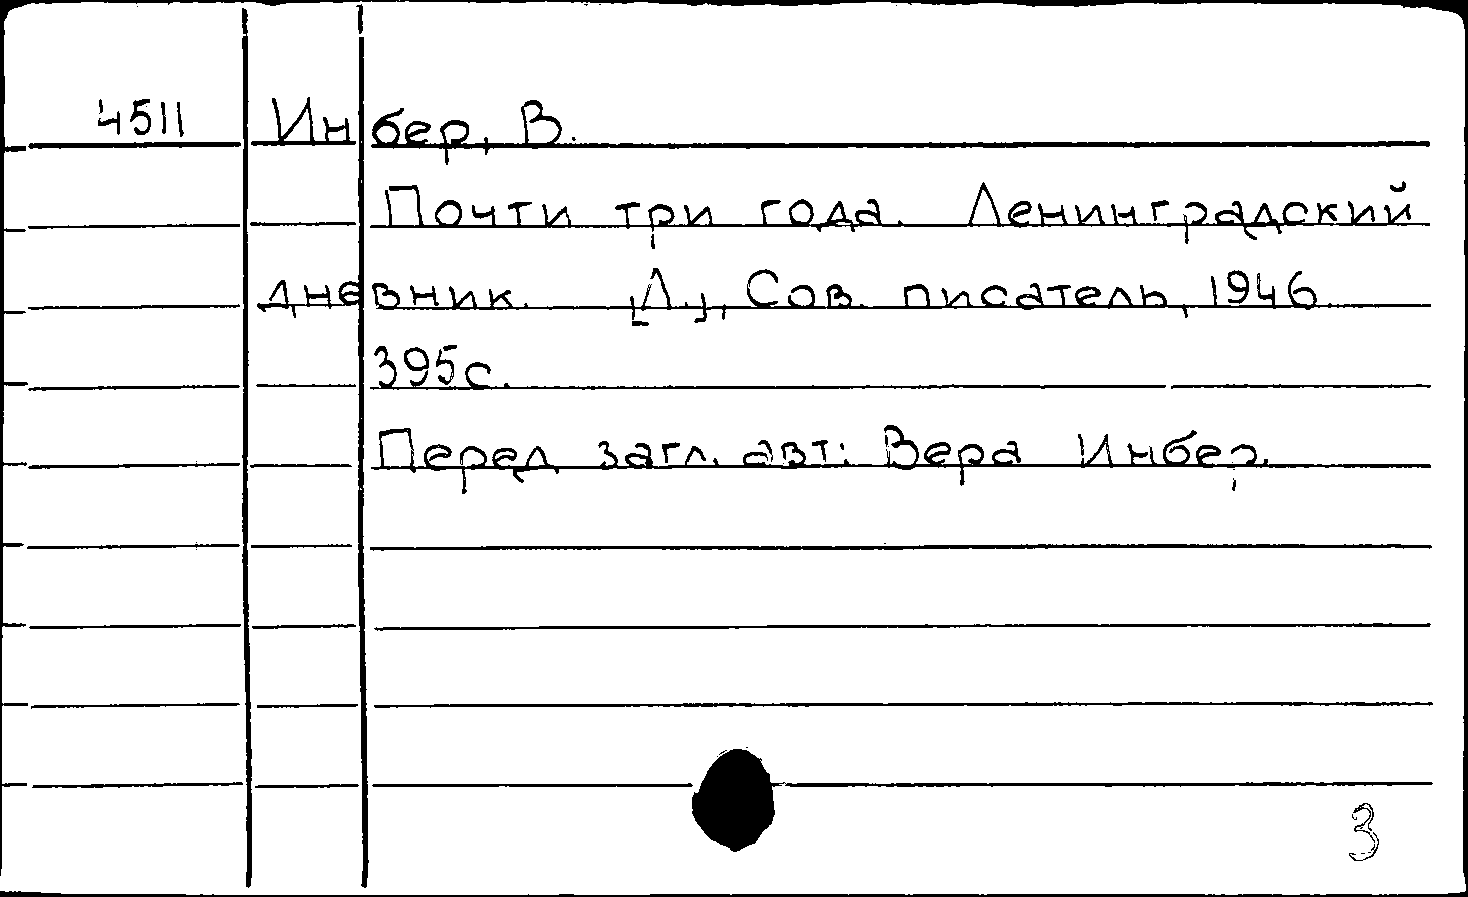 4511 Инбер, В.
Почти три года. Ленинградский
дневник. [Л.], Сов. писатель, 1946
395с.
Перед загл. авт: Вера Инбер.
3